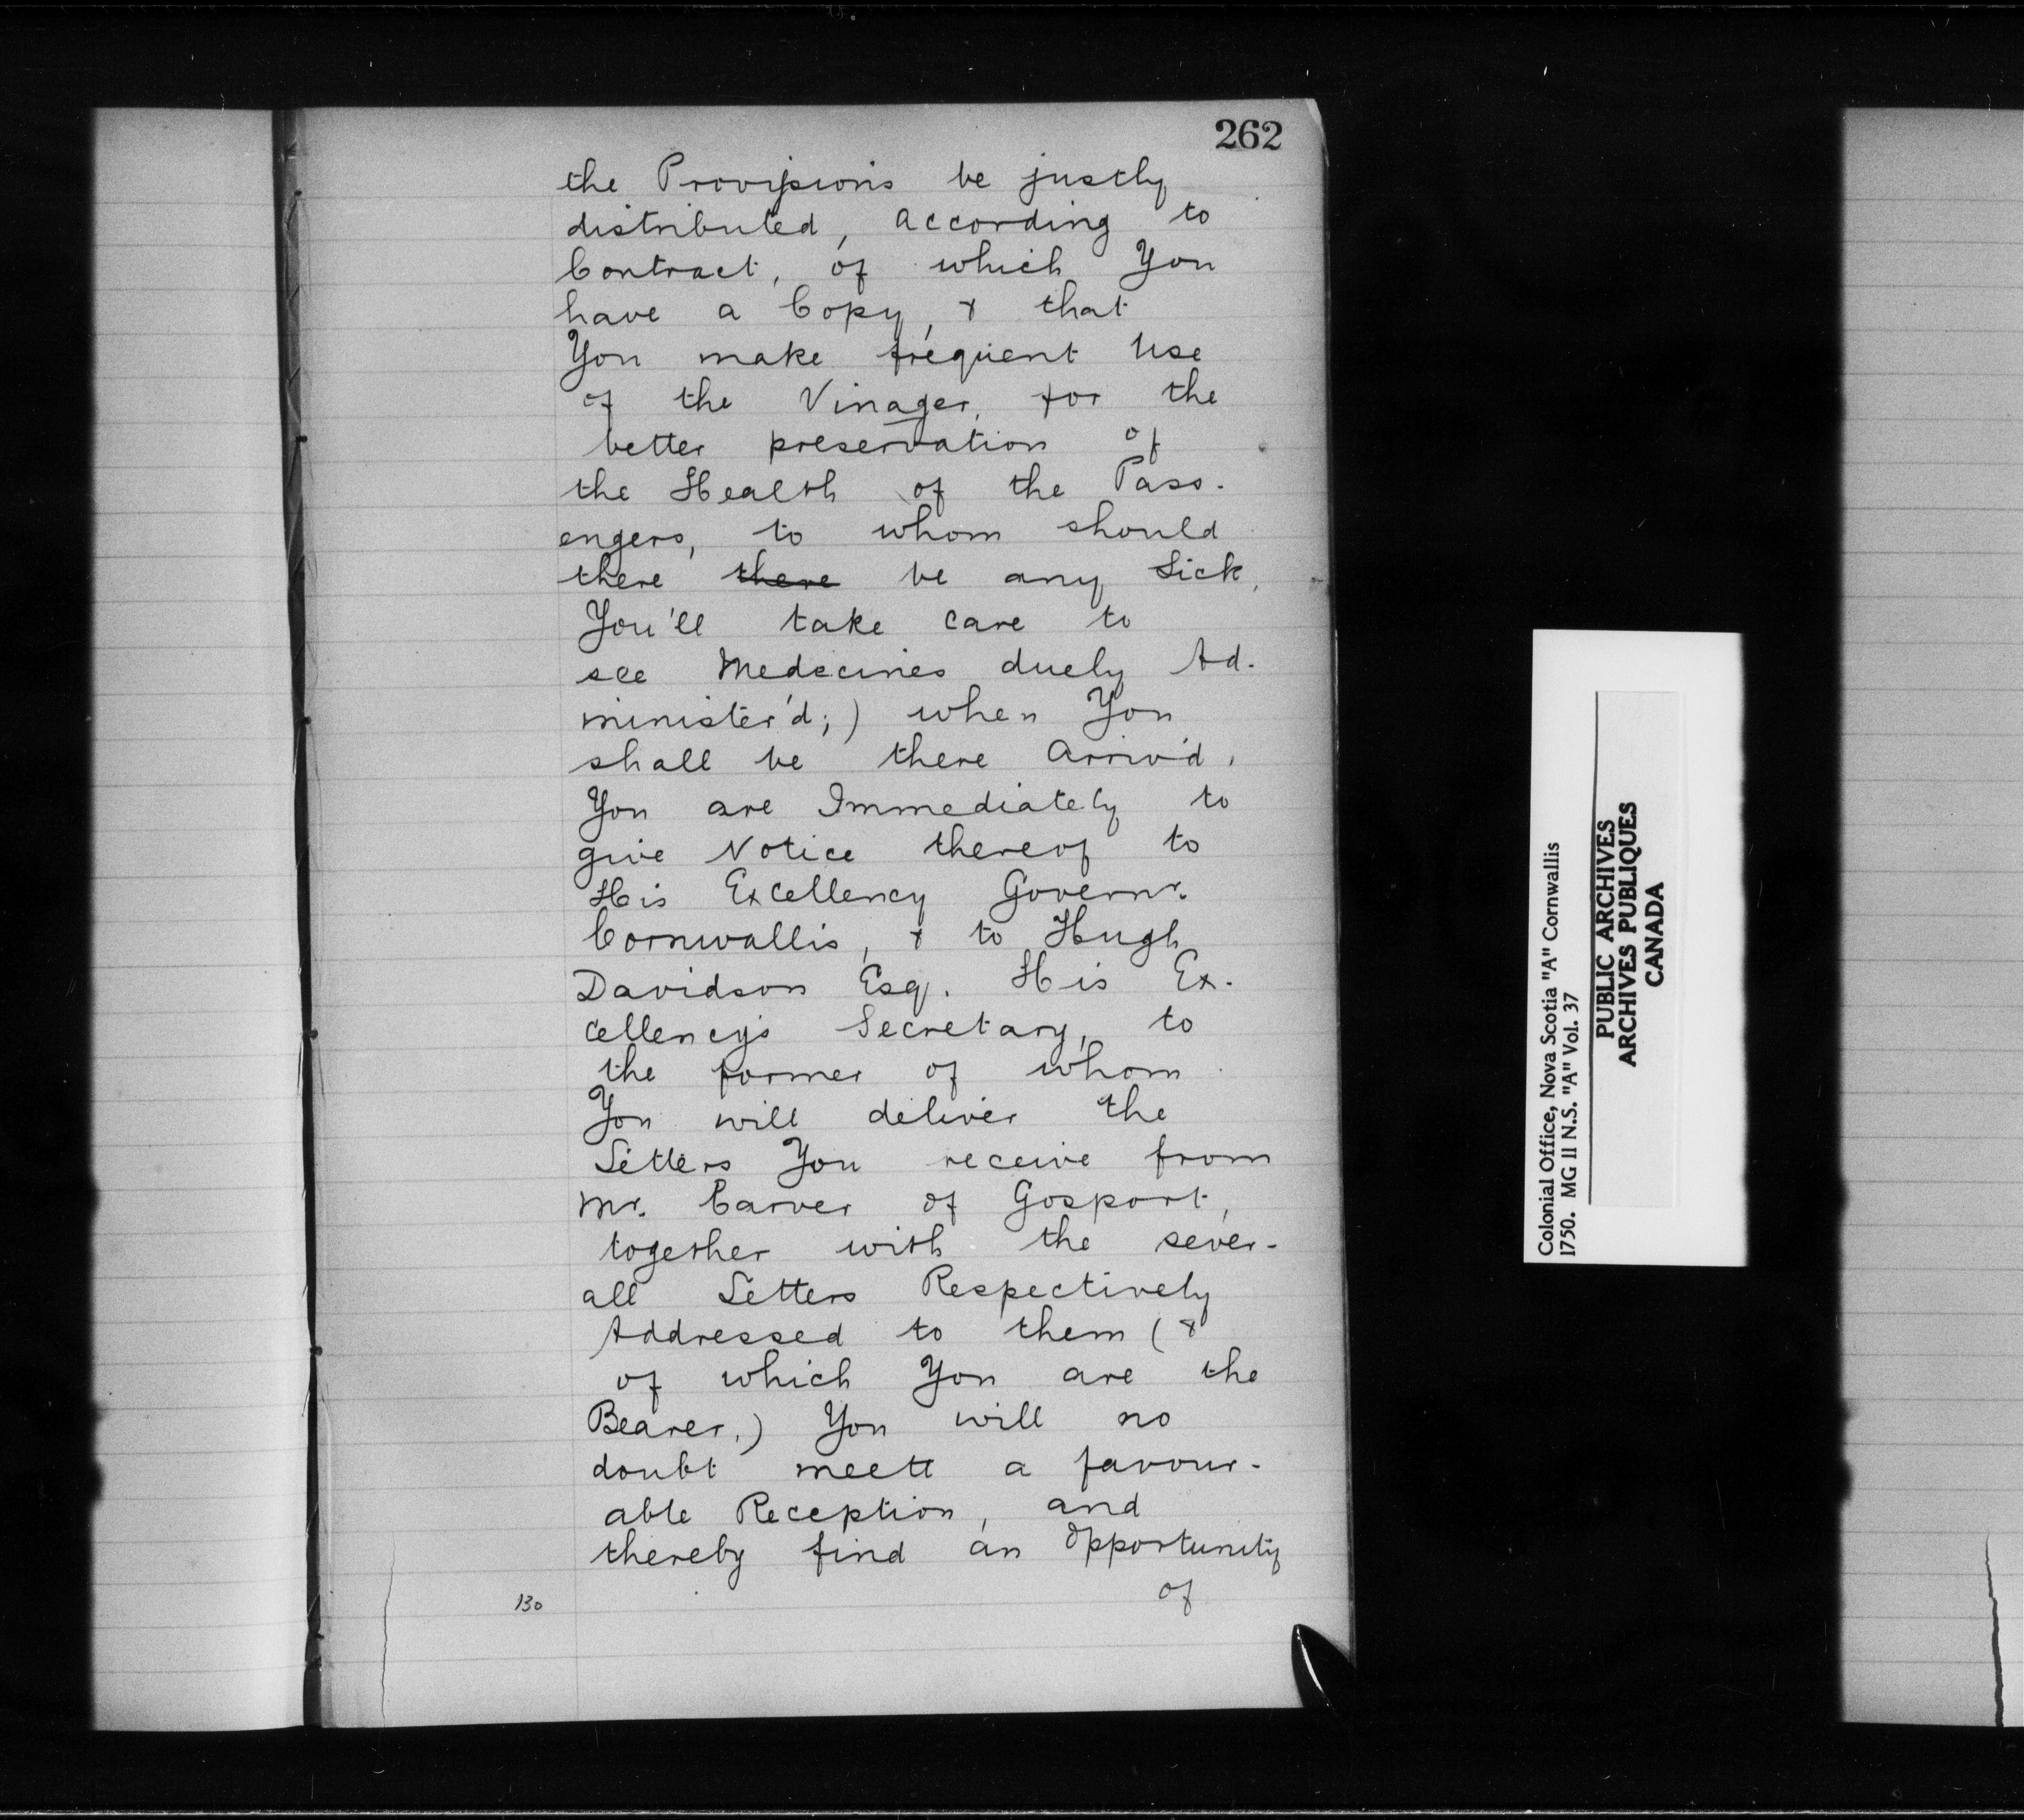 262
the Provisions be justly
distributed, according to
Contract, of which You
have a Copy, & that
You make frequent Use
of the Vinager, for the
better preservation of
the Health of the Pass-
engers, to whom should
there there be any Sick,
You'll take care to
see Medecines duely Ad-
minister'd;) when You
shall be there Arriv'd,
You are Immediately to
give Notice thereof to
His Excellency Governr.
Cornwallis, & to Hugh
Davidson Esq. His Ex-
cellency's Secretary, to
the former of whom
You will deliver the
Letters You receive from
Mr. Carver of Gosport,
together with the sever-
all Letters Respectively
Addressed to them (&
of which You are the
Bearer,) You will no
doubt meett a favour-
able Reception, and
thereby find an Opportunity
of
130
Colonial Office, Nova Scotia "A" Cornwallis
1750. MG 11 N.S. "A" Vol. 37
PUBLIC ARCHIVES
ARCHIVES PUBLIQUES
CANADA